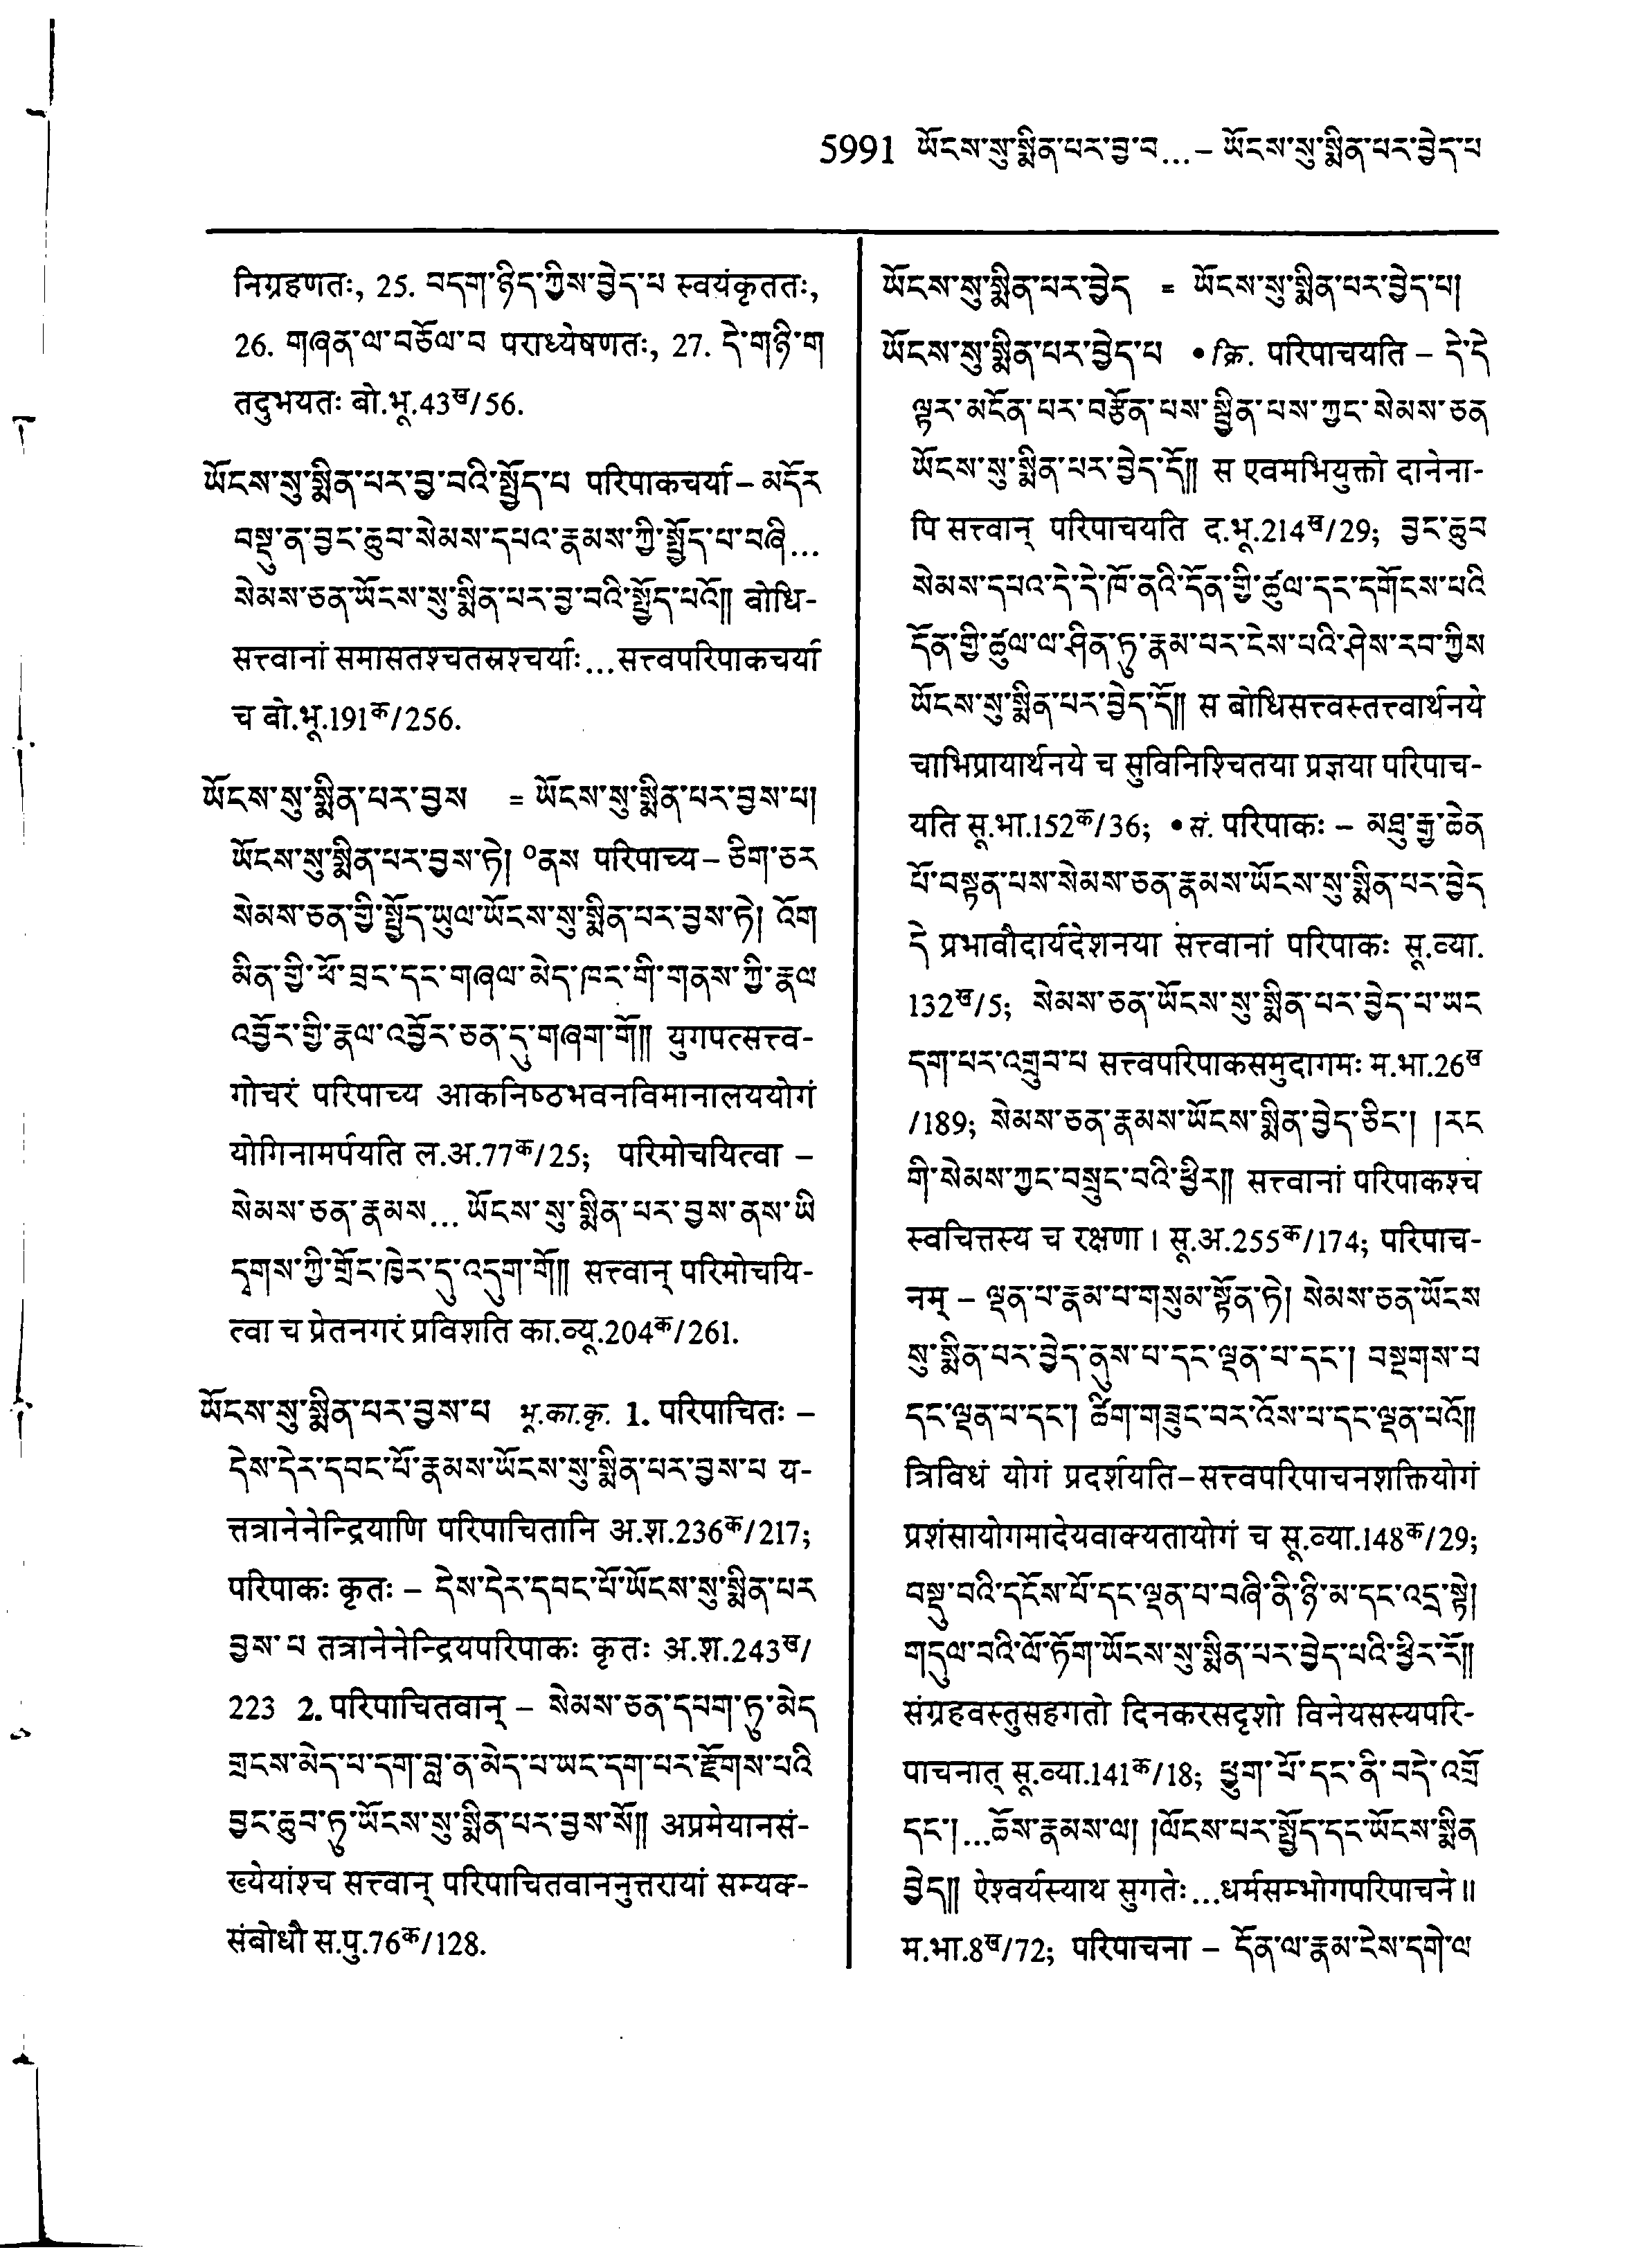 5991 ཡོངས་སུ་སྨིན་པར་བྱ་བ...– ཡོངས་སུ་སྨིན་པར་བྱེད་པ
निग्रहणतः, 25. བདག་ཉིད་ཀྱིས་བྱེད་པ स्वयंकृततः,
26. གཞན་ལ་བཅོལ་བ पराध्येषणतः, 27. དེ་གཉི་ག
तदुभयतः बो.भू.43ख/56.
ཡོངས་སུ་སྨིན་པར་བྱ་བའི་སྤྱོད་པ परिपाकचर्या – མདོར
བསྡུ་ན་བྱང་ཆུབ་སེམས་དཔའ་རྣམས་ཀྱི་སྤྱོད་པ་བཞི...
སེམས་ཅན་ཡོངས་སུ་སྨིན་པར་བྱ་བའི་སྤྱོད་པའོ།། बोधि-
सत्त्वानां समासतश्चतस्रश्चर्याः...सत्त्वपरिपाकचर्या
च बो.भू.191क/256.
ཡོངས་སུ་སྨིན་པར་བྱས = ཡོངས་སུ་སྨིན་པར་བྱས་པ།
ཡོངས་སུ་སྨིན་པར་བྱས་ཏེ། ०ནས परिपाच्य – ཅིག་ཅར
སེམས་ཅན་གྱི་སྤྱོད་ཡུལ་ཡོངས་སུ་སྨིན་པར་བྱས་ཏེ། འོག
མིན་གྱི་ཕོ་བྲང་དང་གཞལ་མེད་ཁང་གི་གནས་ཀྱི་རྣལ
འབྱོར་གྱི་རྣལ་འབྱོར་ཅན་དུ་གཞག་གོ།། युगपत्सत्त्व-
गोचरं परिपाच्य आकनिष्ठभवनविमानालययोगं
योगिनामर्पयति ल.अ.77क/25; परिमोचयित्वा –
སེམས་ཅན་རྣམས... ཡོངས་སུ་སྨིན་པར་བྱས་ནས་ཡི
དྭགས་ཀྱི་གྲོང་ཁྱེར་དུ་འདུག་གོ།། सत्त्वान् परिमोचयि-
त्वा च प्रेतनगरं प्रविशति का.व्यू.204क/261.
ཡོངས་སུ་སྨིན་པར་བྱས་པ भू.का.कृ. 1. परिपाचितः –
དེས་དེར་དབང་པོ་རྣམས་ཡོངས་སུ་སྨིན་པར་བྱས་པ य-
त्तत्रानेनेन्द्रियाणि परिपाचितानि अ.श.236क/217;
परिपाकः कृतः – དེས་དེར་དབང་པོ་ཡོངས་སུ་སྨིན་པར
བྱས་པ तत्रानेनेन्द्रियपरिपाकः कृतः अ.श.243ख/
223 2. परिपाचितवान् – སེམས་ཅན་དཔག་ཏུ་མེད
གྲངས་མེད་པ་དག་བླ་ན་མེད་པ་ཡང་དག་པར་རྫོགས་པའི
བྱང་ཆུབ་ཏུ་ཡོངས་སུ་སྨིན་པར་བྱས་སོ།། अप्रमेयानसं-
ख्येयांश्च सत्त्वान् परिपाचितवाननुत्तरायां सम्यक्-
संबोधौ स.पु.76क/128.
ཡོངས་སུ་སྨིན་པར་བྱེད = ཡོངས་སུ་སྨིན་པར་བྱེད་པ།
ཡོངས་སུ་སྨིན་པར་བྱེད་པ • क्रि. परिपाचयति – དེ་དེ
ལྟར་མངོན་པར་བརྩོན་པས་སྦྱིན་པས་ཀྱང་སེམས་ཅན
ཡོངས་སུ་སྨིན་པར་བྱེད་དོ།། स एवमभियुक्तो दानेना-
पि सत्त्वान् परिपाचयति द.भू.214ख/29; བྱང་ཆུབ
སེམས་དཔའ་དེ་དེ་ཁོ་ནའི་དོན་གྱི་ཚུལ་དང་དགོངས་པའི
དོན་གྱི་ཚུལ་ལ་ཤིན་ཏུ་རྣམ་པར་ངེས་པའི་ཤེས་རབ་ཀྱིས
ཡོངས་སུ་སྨིན་པར་བྱེད་དོ།། स बोधिसत्त्वस्तत्त्वार्थनये
चाभिप्रायार्थनये च सुविनिश्चितया प्रज्ञया परिपाच-
यति सू.भा.152क/36; • सं. परिपाकः – མཐུ་རྒྱ་ཆེན
པོ་བསྟན་པས་སེམས་ཅན་རྣམས་ཡོངས་སུ་སྨིན་པར་བྱེད
དེ प्रभावौदार्यदेशनया सत्त्वानां परिपाकः सू.व्या.
132ख/5; སེམས་ཅན་ཡོངས་སུ་སྨིན་པར་བྱེད་པ་ཡང
དག་པར་འགྲུབ་པ सत्त्वपरिपाकसमुदागमः म.भा.26ख
/189; སེམས་ཅན་རྣམས་ཡོངས་སྨིན་བྱེད་ཅིང་། །རང
གི་སེམས་ཀྱང་བསྲུང་བའི་ཕྱིར།། सत्त्वानां परिपाकश्च
स्वचित्तस्य च रक्षणा । सू.अ.255क/174; परिपाच-
नम् – ལྡན་པ་རྣམ་པ་གསུམ་སྟོན་ཏེ། སེམས་ཅན་ཡོངས
སུ་སྨིན་པར་བྱེད་ནུས་པ་དང་ལྡན་པ་དང་། བསྔགས་པ
དང་ལྡན་པ་དང་། ཚིག་གཟུང་བར་འོས་པ་དང་ལྡན་པའོ།།
त्रिविधं योगं प्रदर्शयति–सत्त्वपरिपाचनशक्तियोगं
प्रशंसायोगमादेयवाक्यतायोगं च सू.व्या.148क/29;
བསྡུ་བའི་དངོས་པོ་དང་ལྡན་པ་བཞི་ནི་ཉི་མ་དང་འདྲ་སྟེ།
གདུལ་བའི་ལོ་ཏོག་ཡོངས་སུ་སྨིན་པར་བྱེད་པའི་ཕྱིར་རོ།།
संग्रहवस्तुसहगतो दिनकरसदृशो विनेयसस्यपरि-
पाचनात् सू.व्या.141क/18; ཕྱུག་པོ་དང་ནི་བདེ་འགྲོ
དང་།...ཆོས་རྣམས་ལ། །ལོངས་པར་སྤྱོད་དང་ཡོངས་སྨིན
བྱེད།། ऐश्वर्यस्याथ सुगतेः...धर्मसम्भोगपरिपाचने ॥
म.भा.8ख/72; परिपाचना – དོན་ལ་རྣམ་ངེས་དགེ་ལ